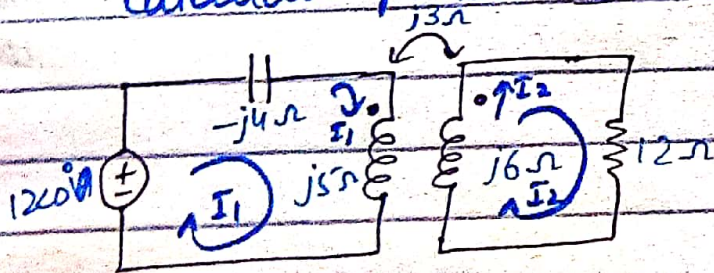 j3Ω
-j4Ω
I1
I2
12∠0°V
I1
j5Ω
j6Ω
I2
12Ω